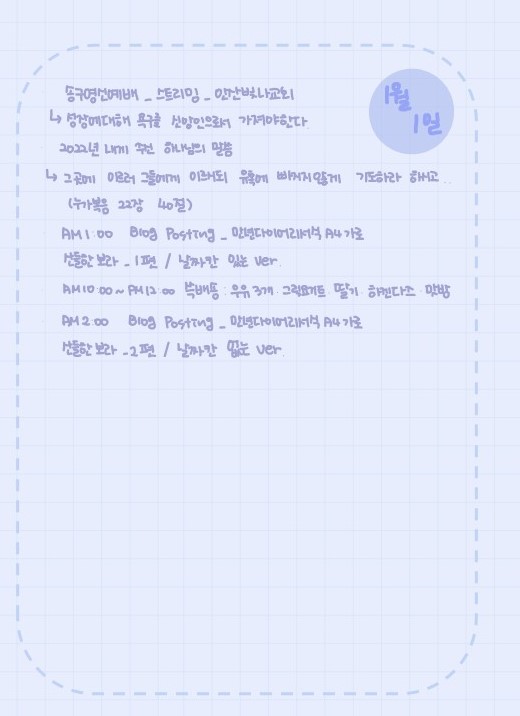 송구영신예배 _ 스트리밍 _ 안산빛나교회
1월
1일
↳ 성장에대해 욕구를 신앙인으로써 가져야한다.
2022년 내게 주신 하나님의 말씀
↳ 그곳에 이르러 그들에게 이르시되 유혹에 빠지지않게 기도하라 하시고..
(누가복음 22장 40절)
AM 1:00 Blog Posting _ 만년다이어리서식 A4 가로
산뜻한 보라 _ 1편 / 날짜칸 있는 ver.
AM 10:00 ~ AM 12:00 쓱배송 : 우유 3개. 그릭요거트. 딸기. 하겐다즈. 맛밤
AM 2:00 Blog Posting _ 만년다이어리서식 A4 가로
산뜻한 보라 _ 2편 / 날짜칸 없는 ver.